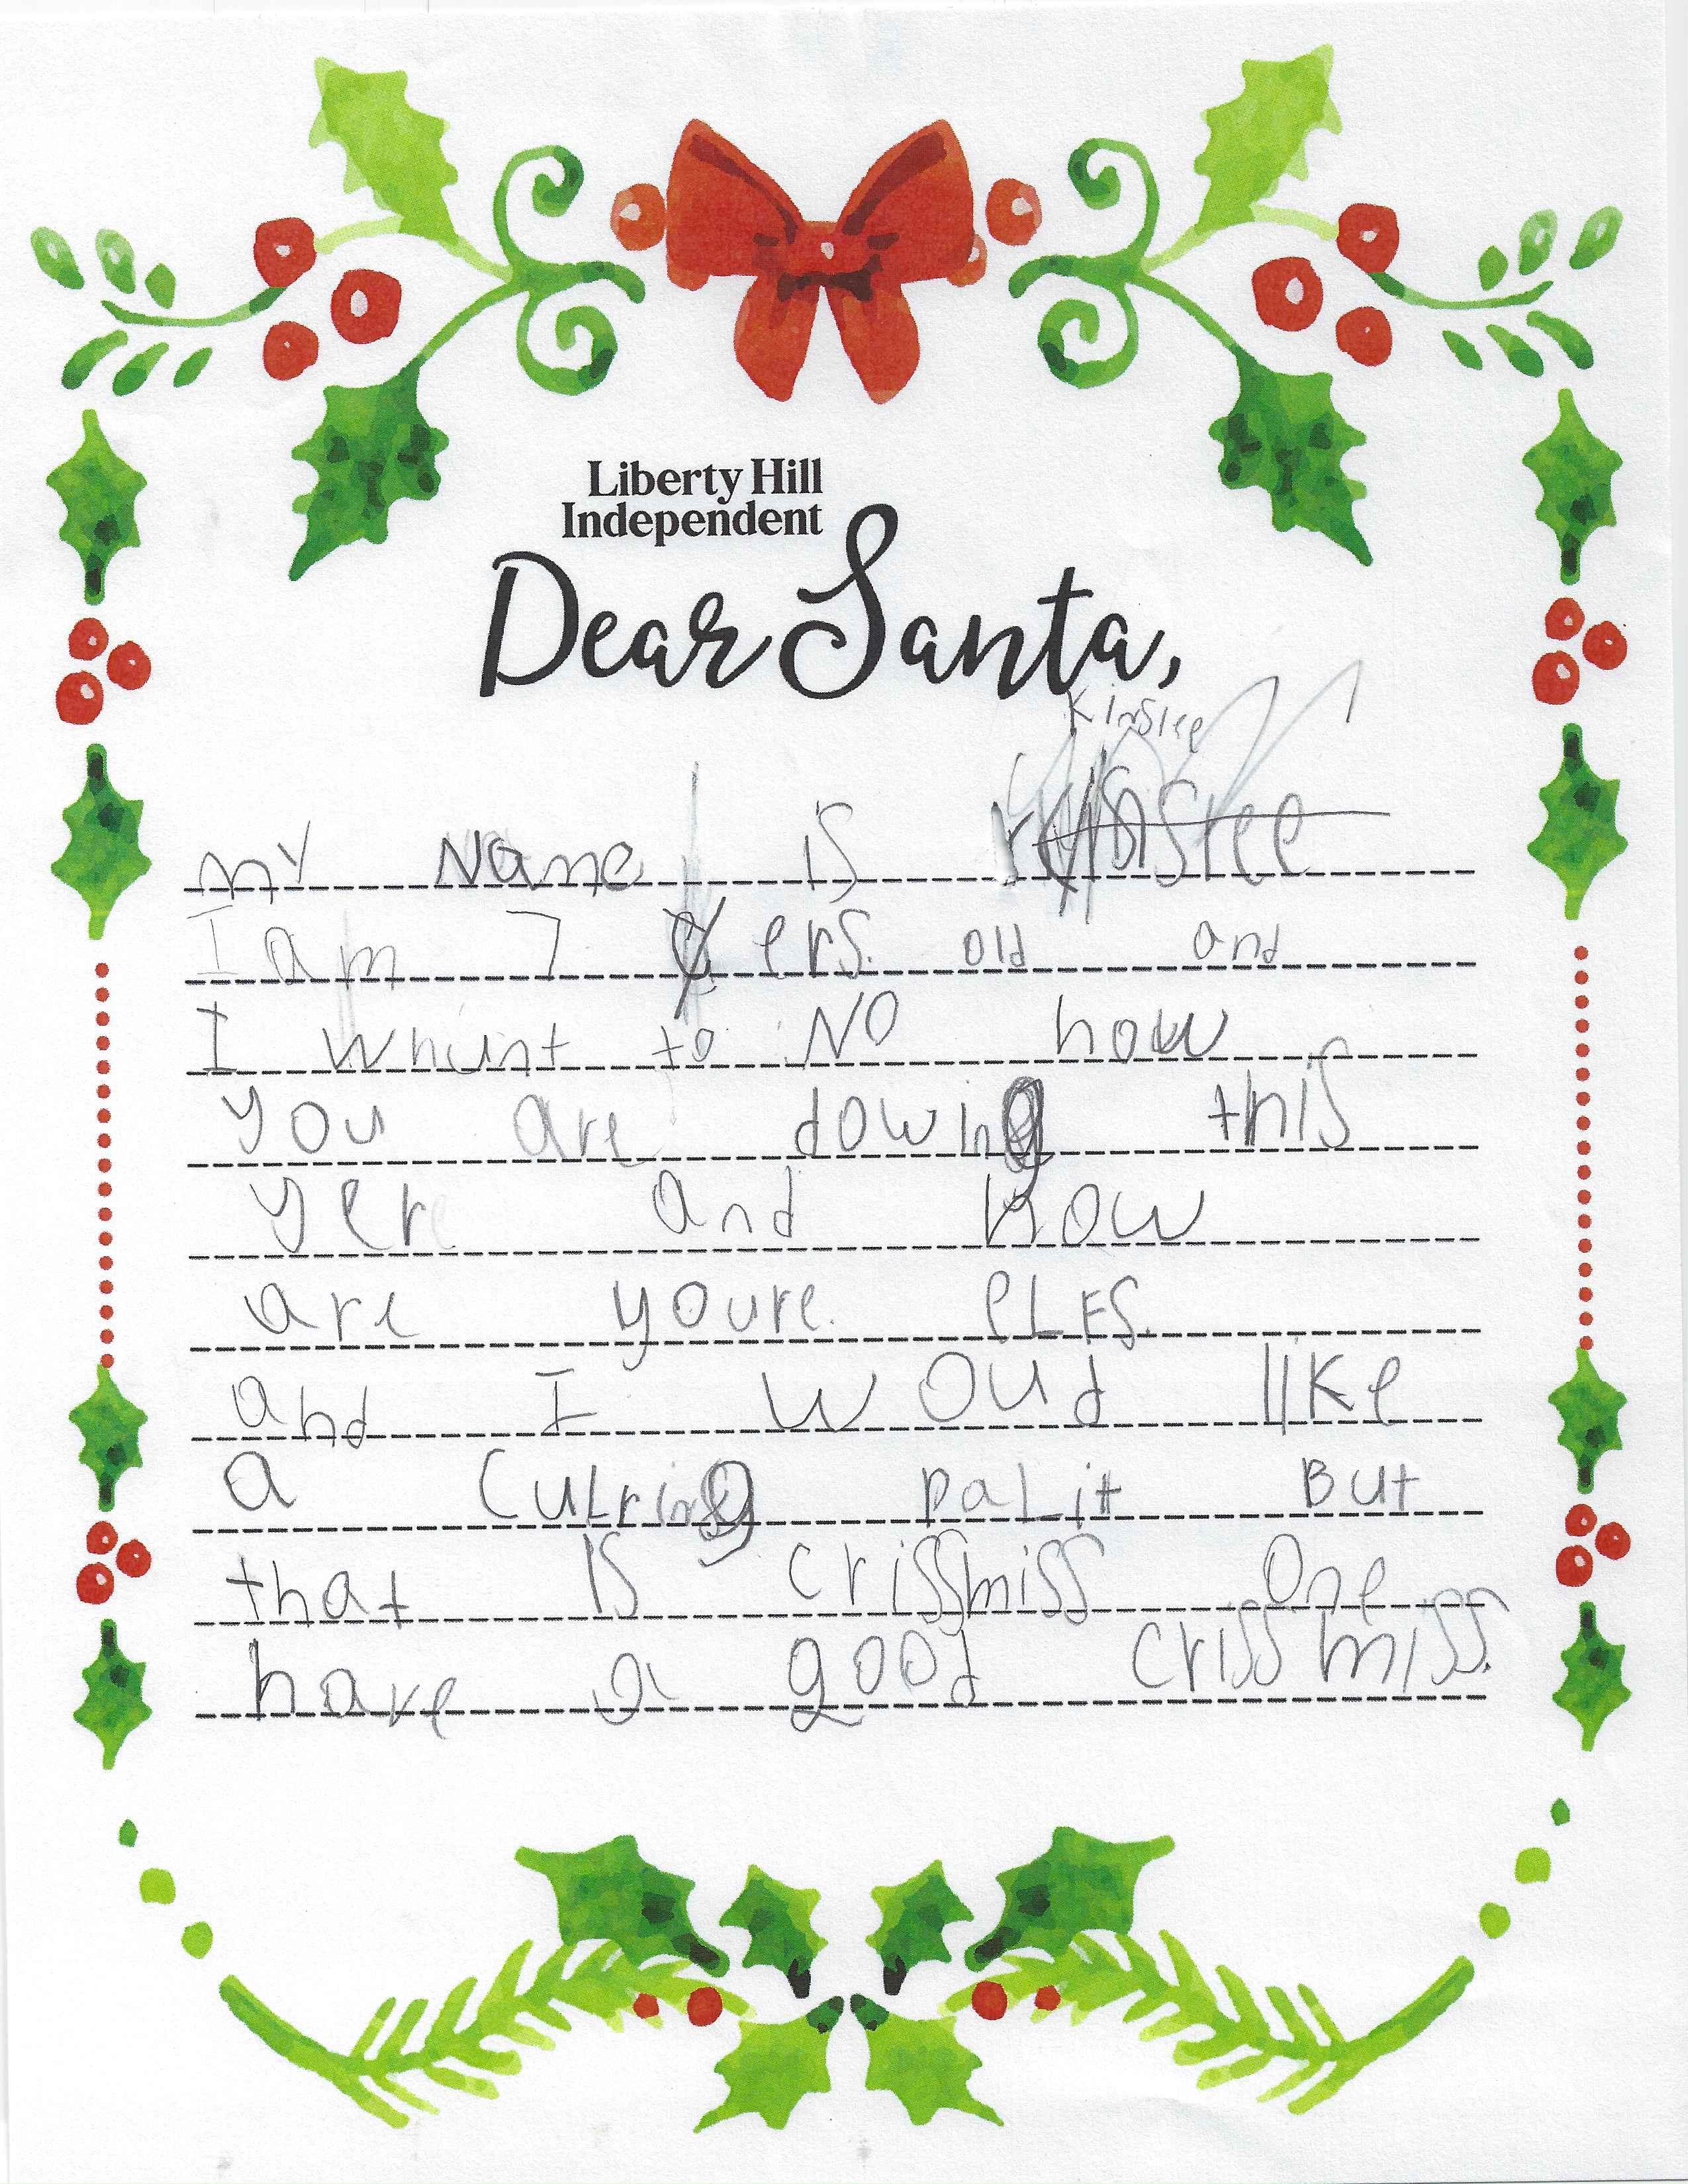 Liberty Hill
Independent
Dear Santa,
Kinslee
my Name is
I am 7 ers. old and
I whunt to NO how
you are dowing this
yere and how
are youre eLFS.
and I woud like
a CuLring paLit But
that is crissmiss One
have a good crissmiss.